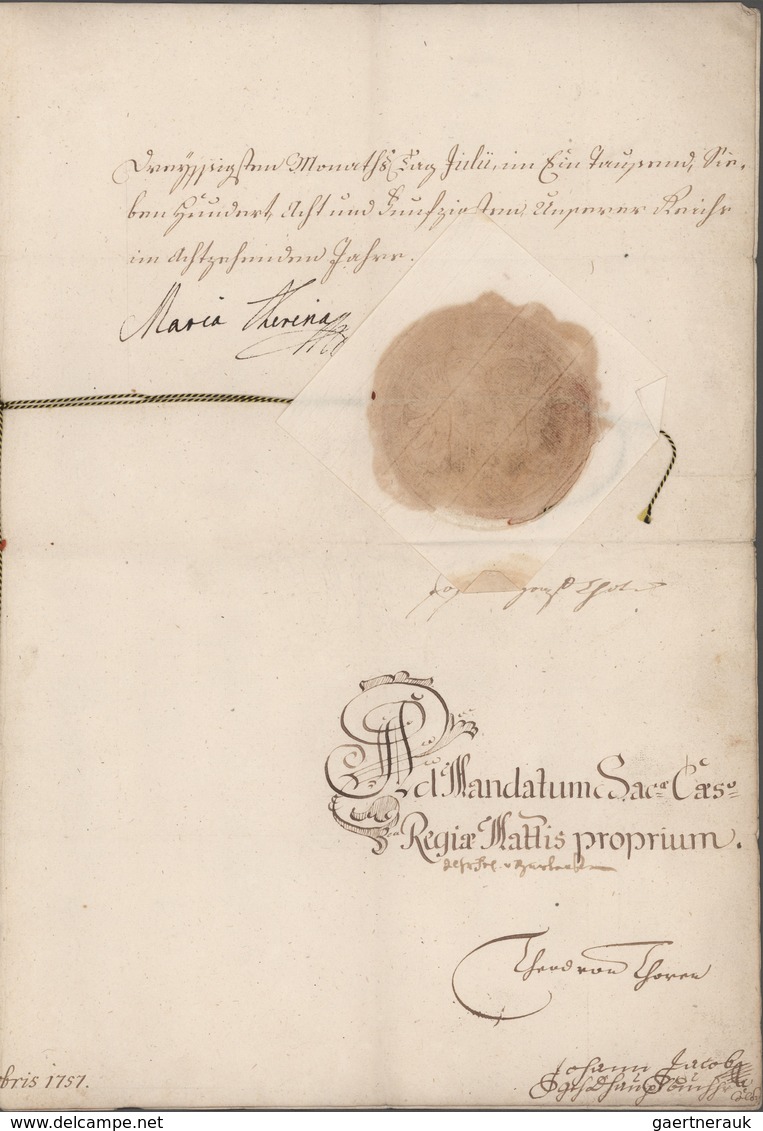 Dreyssigsten Monaths Tag Julii, im Ein Tausend, Sie-
ben Hundert, Acht und Funfzigsten, Unserer Reiche
im Achtzehenden Jahre.
Maria Theresia
Ad Mandatum Sacæ Cæso
Regiæ Mattis proprium.
Theod von Thoren
Johann Jacob
bris 1757.
gaertnerauk